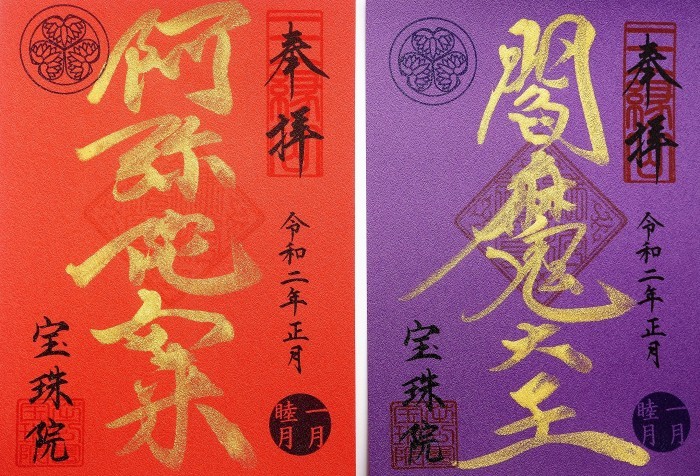 奉拝
令和二年正月
一月
睦月
阿弥陀如来
宝珠院
奉拝
令和二年正月
一月
睦月
閻魔大王
宝珠院